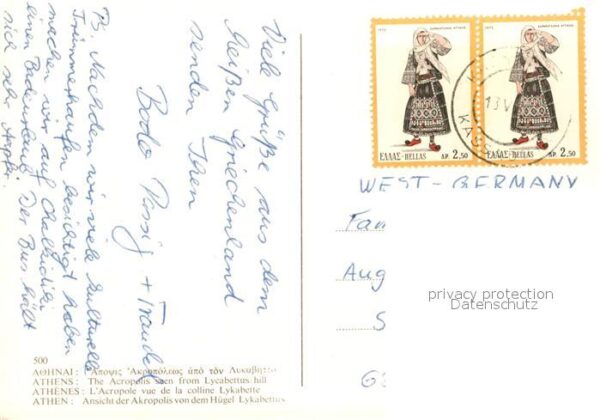 Viele Grüße aus dem
heißen Griechenland
senden Ihnen
Bodo + Traudel
PS. Nachdem wir viele kulturelle
Trümmerhaufen besichtigt haben
machen wir auf Chalkidiki
einen Badeurlaub. Der Bus hält
sich sehr
500
ΑΘΗΝΑΙ : Ἄποψις Ἀκροπόλεως ἀπὸ τὸν Λυκαβηττό
ATHENS : The Acropolis seen from Lycabettus hill
ATHENES : L'Acropole vue de la colline Lykabette
ATHEN : Ansicht der Akropolis von dem Hügel Lykabettus
1972
ΕΛΛΑΣ-HELLAS ΔΡ. 2,50
1972
ΕΛΛΑΣ-HELLAS ΔΡ. 2,50
WEST-GERMANY
Fam
Aug
S
privacy protection
Datenschutz